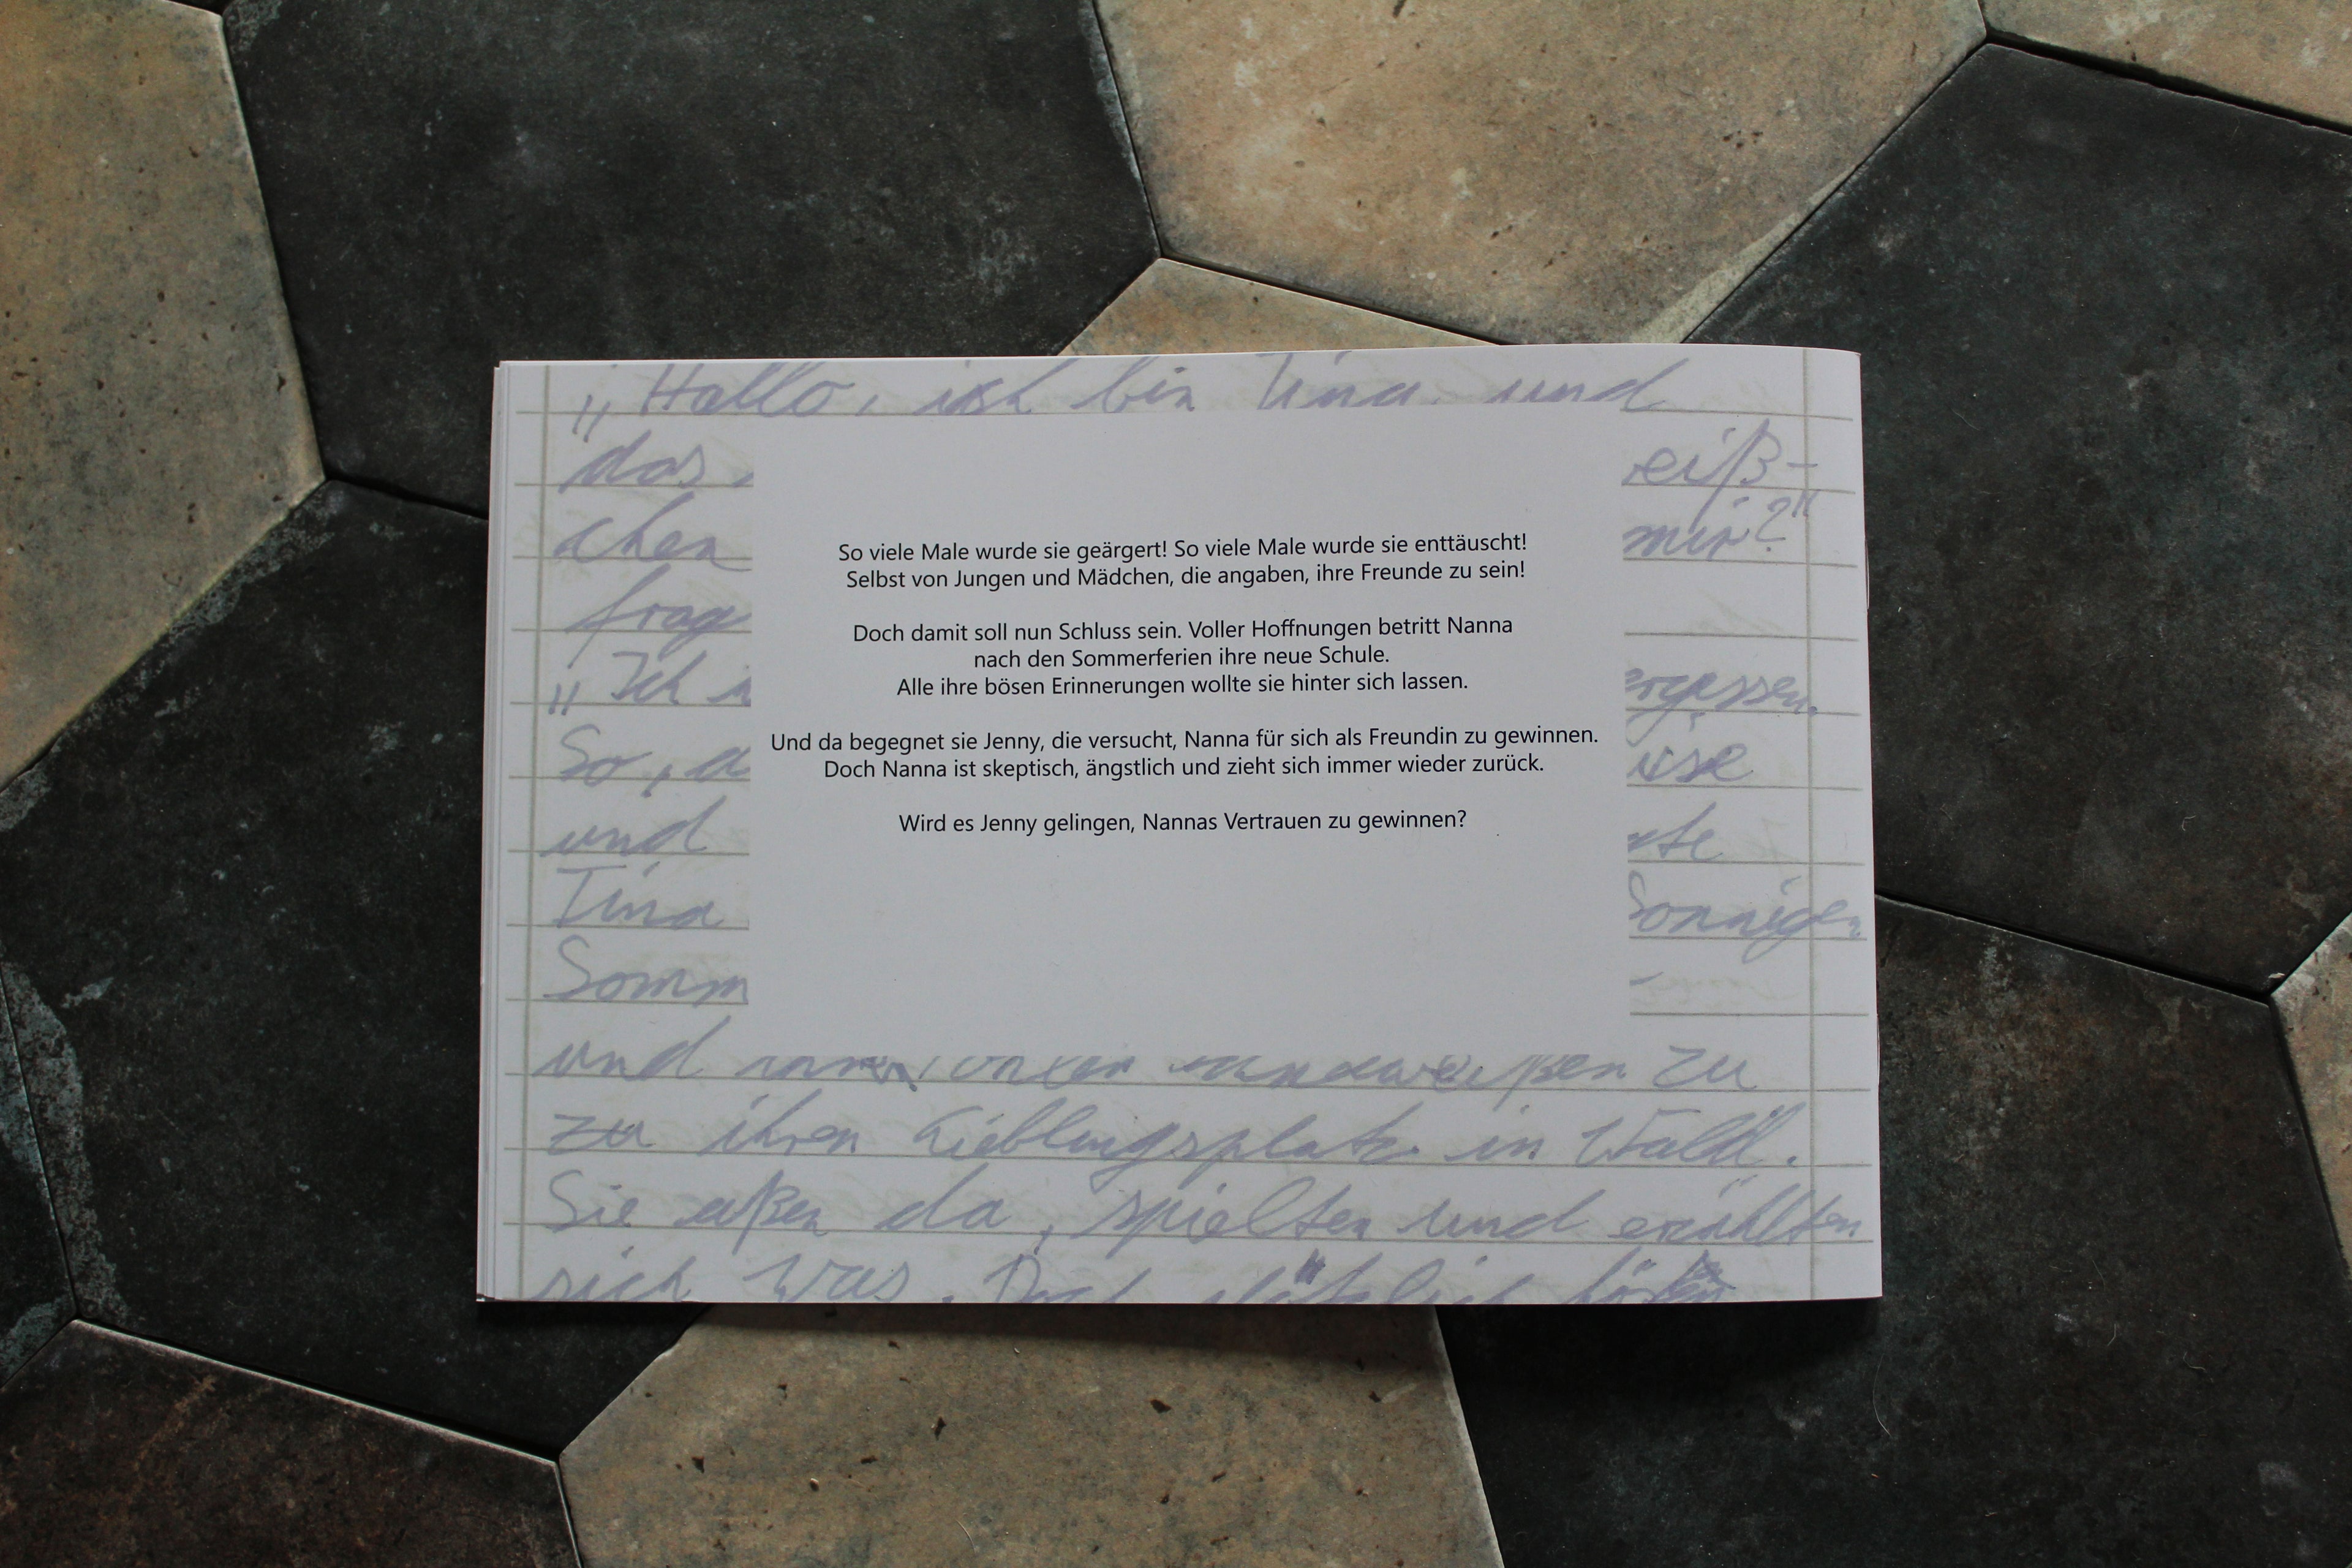 „Hallo, ich bin Tina und
das
eiß-
chen
mir?"
frag
„Ich
ergessen.
So, d
und
Tina
Sonnigen
Somm
und zu
zu ihren Lieblingsplatz in Wald.
Sie aßen da, spielten und erzählten
sich was. Doch plötzlich
So viele Male wurde sie geärgert! So viele Male wurde sie enttäuscht!
Selbst von Jungen und Mädchen, die angaben, ihre Freunde zu sein!
Doch damit soll nun Schluss sein. Voller Hoffnungen betritt Nanna
nach den Sommerferien ihre neue Schule.
Alle ihre bösen Erinnerungen wollte sie hinter sich lassen.
Und da begegnet sie Jenny, die versucht, Nanna für sich als Freundin zu gewinnen.
Doch Nanna ist skeptisch, ängstlich und zieht sich immer wieder zurück.
Wird es Jenny gelingen, Nannas Vertrauen zu gewinnen?